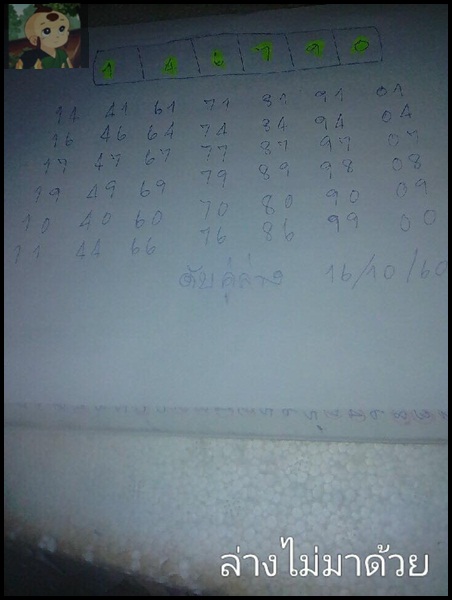 1 4 6 7 9 0
14 41 61 71 81 91 01
16 46 64 74 84 94 04
17 47 67 77 87 97 07
19 49 69 79 89 98 08
10 40 60 70 80 90 09
11 44 66 76 86 99 00
ดับคู่ล่าง 16/10/60
ล่างไม่มาด้วย